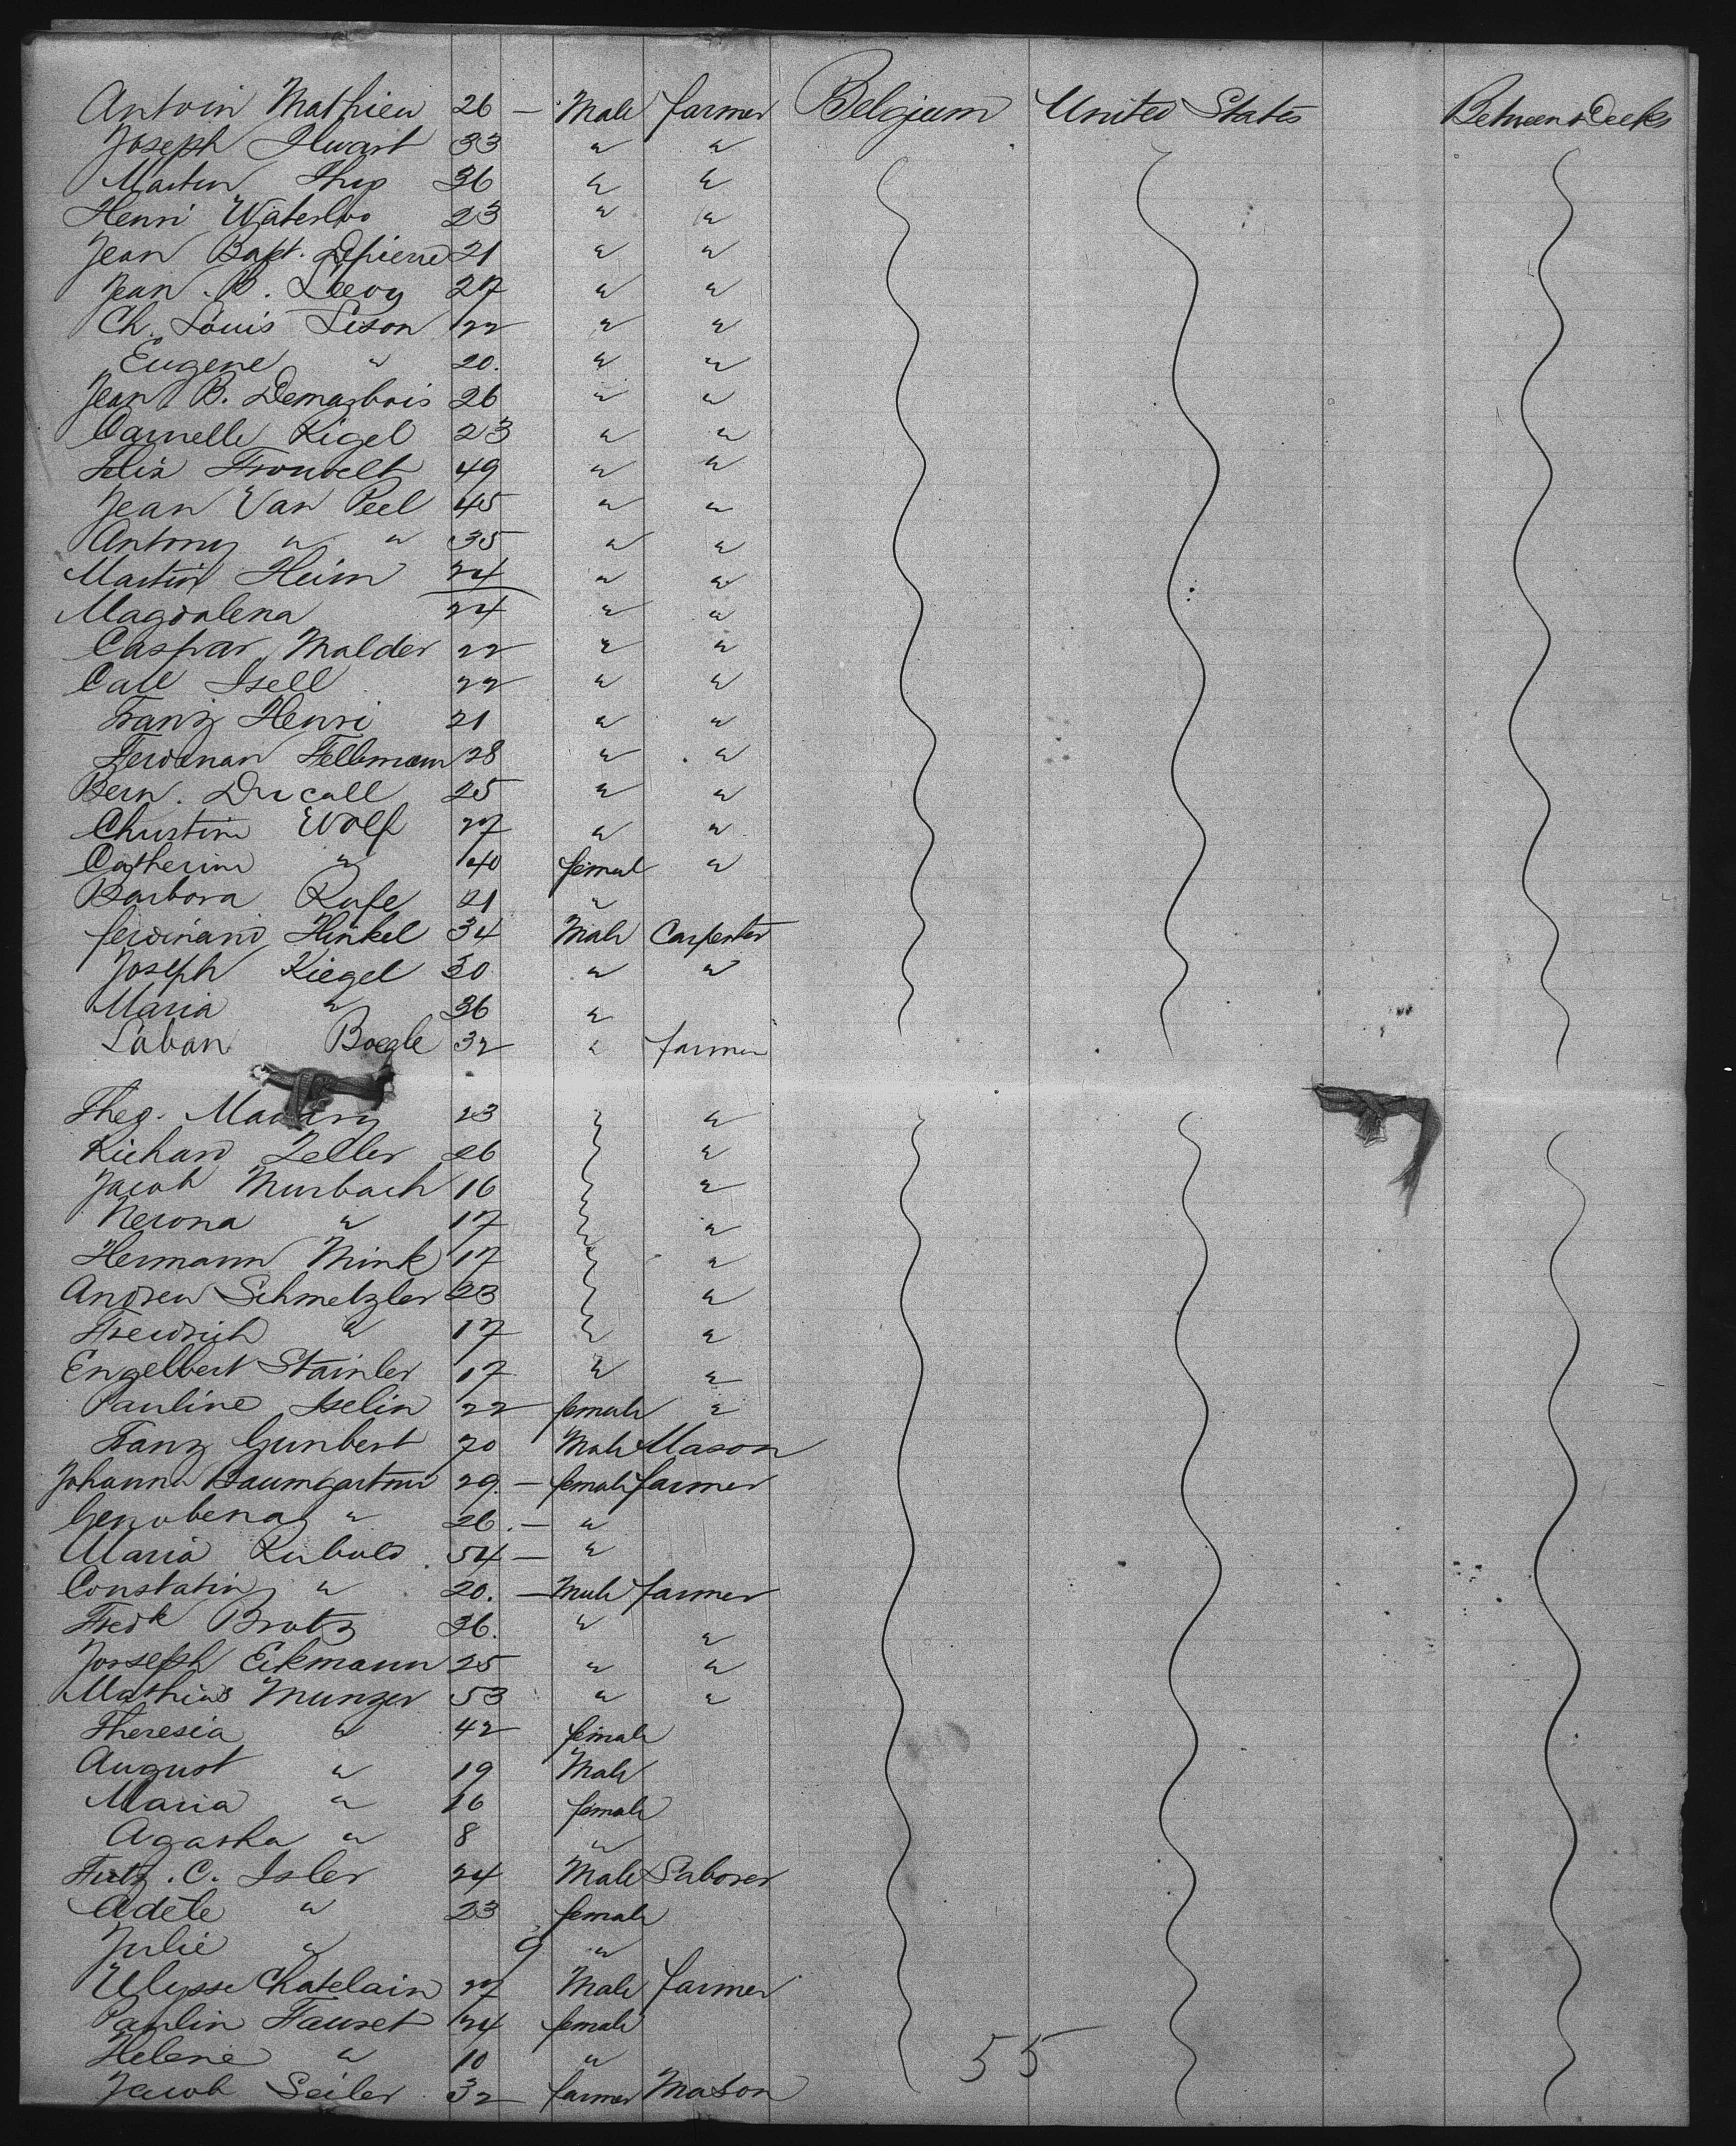 Antoin Mathieu 26 — Male farmer Belgium United States Between Decks
Joseph Huart 33 " "
Martin Thys 36 " "
Henri Waterloo 23 " "
Jean Bapt. Depierre 21 " "
Jean B. 27 " "
Ch. Louis Lison 22 " "
Eugene " 20. " "
Jean B. Demazbois 26 " "
Camelle Rigel 23 " "
Felix 49 " "
Jean Van Peel 45 " "
Antony " " 35 " "
Martin Heim 24 " "
Magdalena 24 " "
Caspar Malder 22 " "
Call Isell 22 " "
Franz Henri 21 " "
Ferdinan Fellemann 28 " "
Bern. Ducall 25 " "
Christine Wolf 27 " "
Catherine " 40 femal "
Barbara Rufe 21 "
ferdinand Hinkel 34 Male Carpenter
Joseph Kiegel 30 " "
Maria " 36 "
Laban Boegle 32 " farmer
Theo. 23 " "
Richard Zeller 26 " "
Jacob Murbach 16 " "
Nerona " 17 " "
Hermann Mink 17 " "
Andrew Schmelzler 23 " "
Friedrich " 17 " "
Engelbert Stainler 17 " "
Pauline Iselin 22 female "
Franz Gunbert 70 Male Mason
Johanna Baumgartner 29. — female farmer
Genobena " 26. — "
Maria Rubold 54 — "
Constatin " 20. — Male farmer
Fredk Brotz 36. " "
Jorseph Eikmann 25 " "
Mathias Munzer 53 " "
Theresia " 42 female
August " 19 Male
Maria " 16 female
Agatha " 8 "
Fritz. C. Isler 24 Male Laborer
Adéle " 23 female
Julie " 9 "
Ulysse Chatelain 27 Male farmer
Paulin Fauset 24 female
Helene " 10 "
Jacob Seiler 32 farmer Mason
55